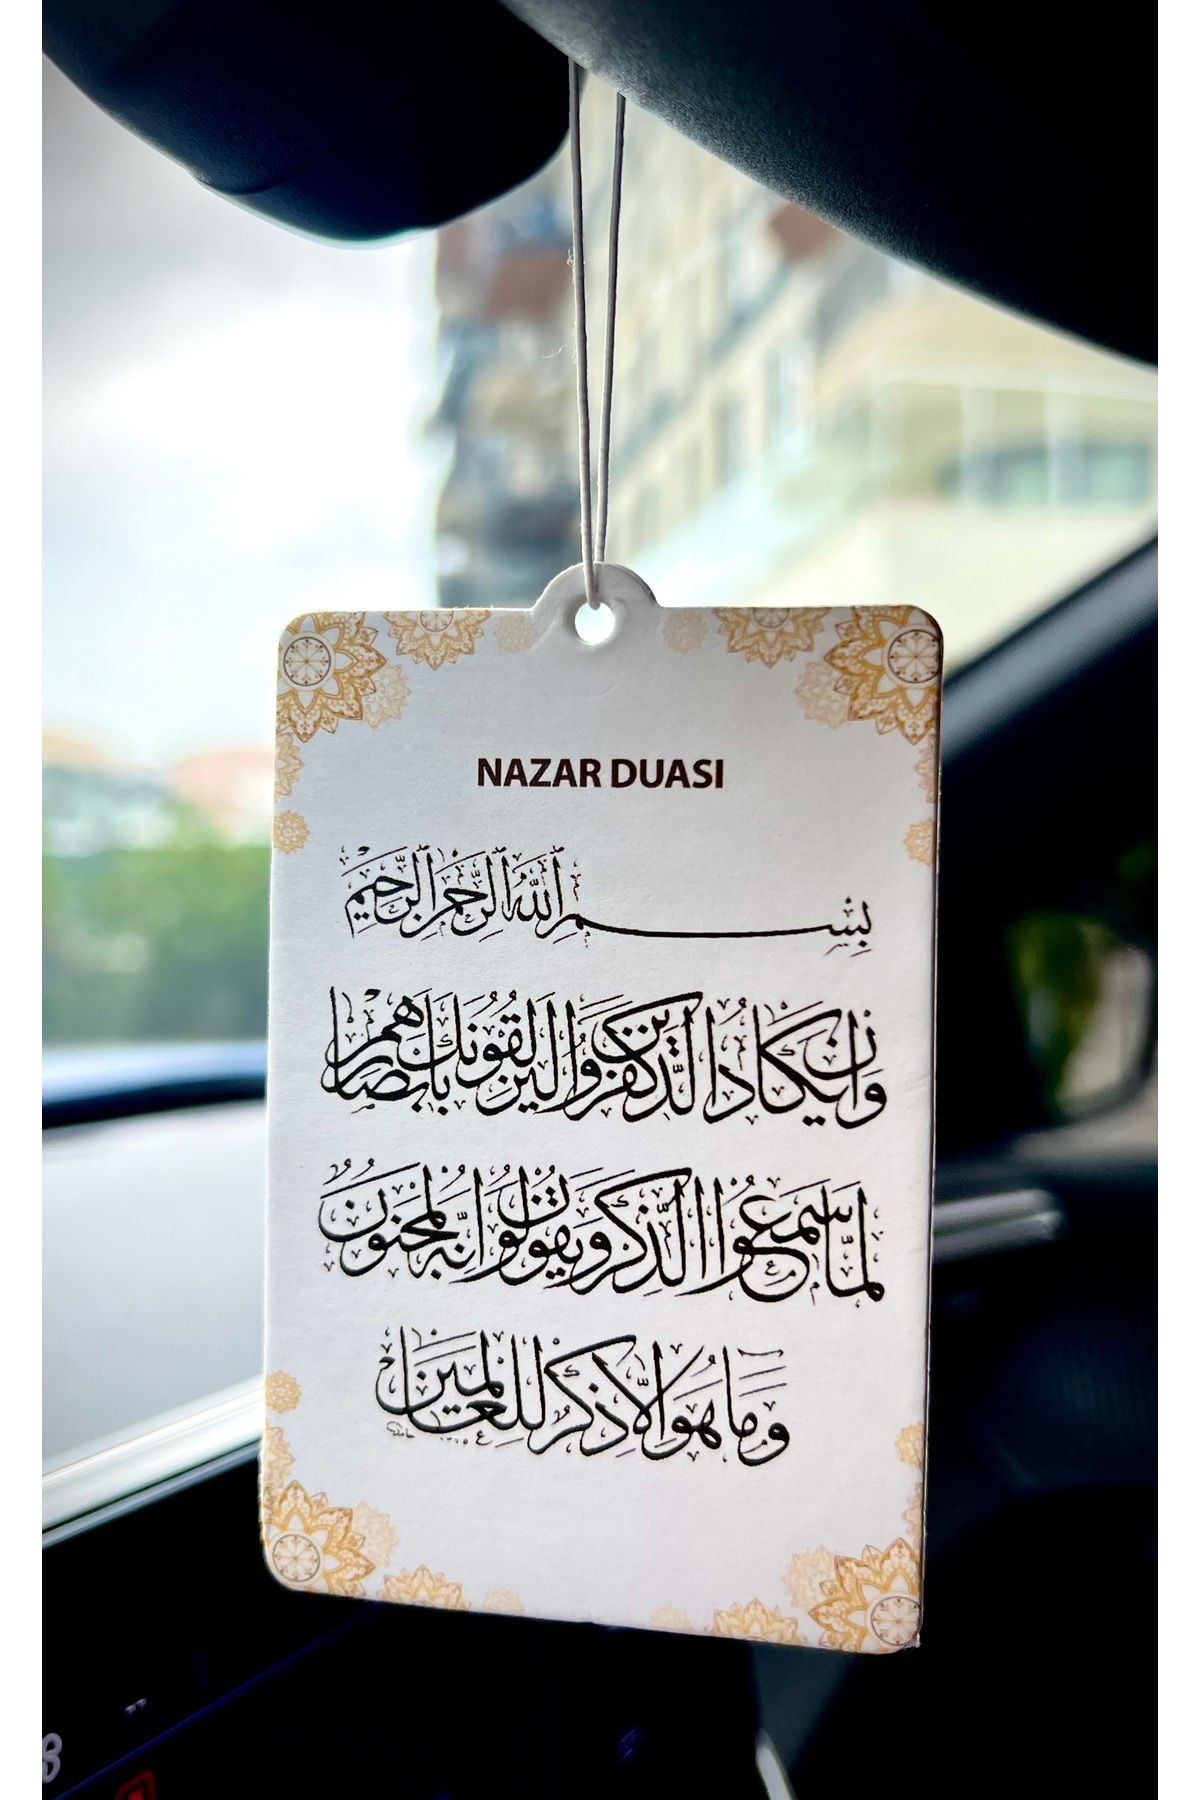 NAZAR DUASI
بِسْمِ اللّٰهِ الرَّحْمٰنِ الرَّحِيمِ
وَاِنْ يَكَادُ الَّذِينَ كَفَرُوا لَيُزْلِقُونَكَ بِاَبْصَارِهِمْ
لَمَّا سَمِعُوا الذِّكْرَ وَيَقُولُونَ اِنَّهُ لَمَجْنُونٌ
وَمَا هُوَ اِلَّا ذِكْرٌ لِلْعَالَمِينَ